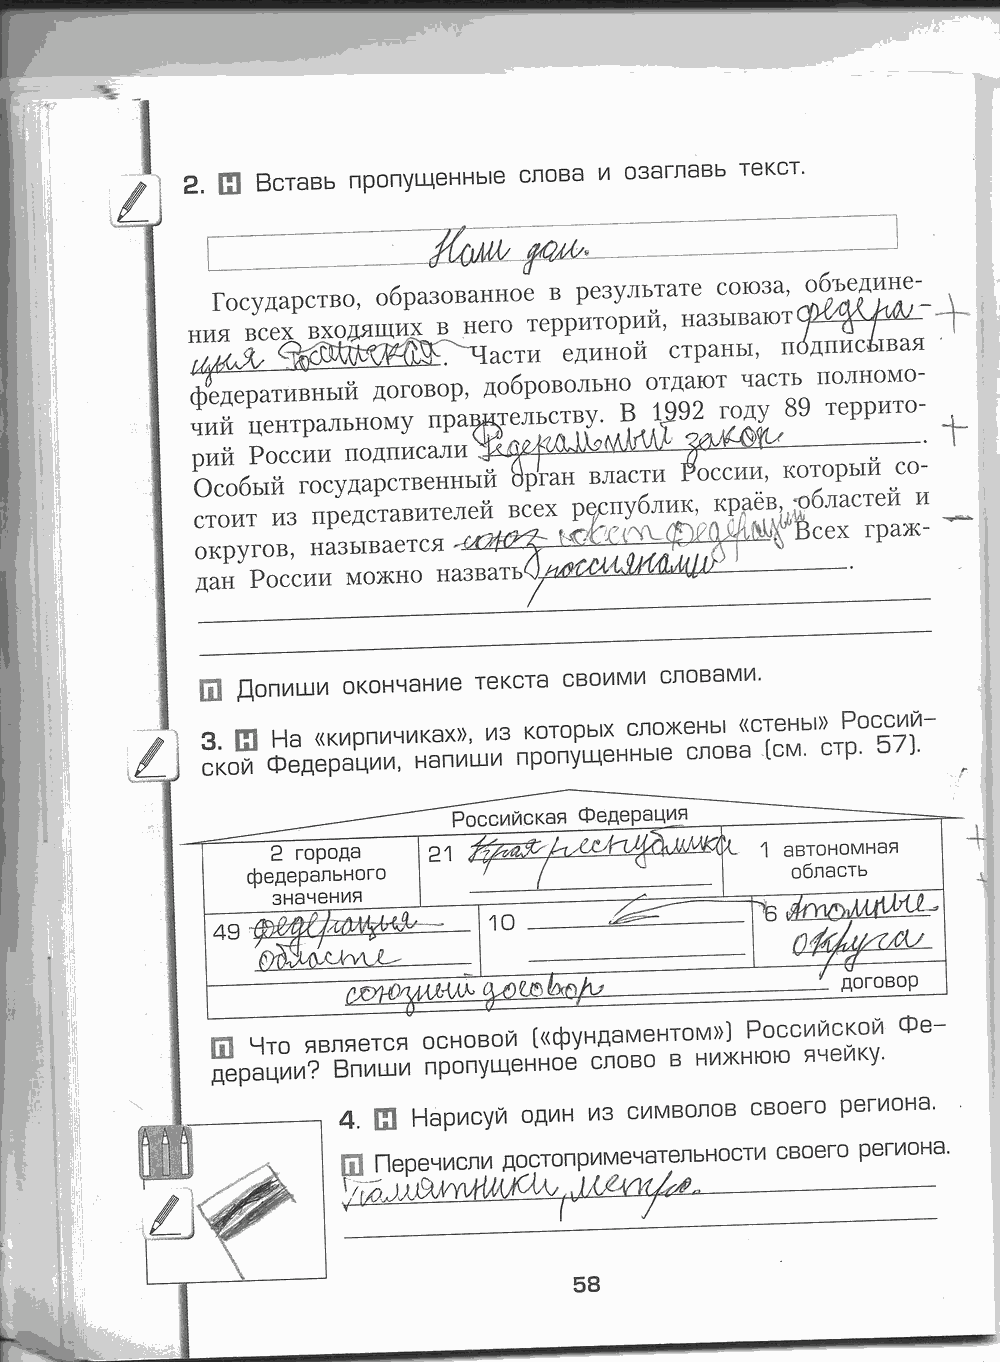 2. Н Вставь пропущенные слова и озаглавь текст.
Наш дом.
Государство, образованное в результате союза, объедине-
ния всех входящих в него территорий, называют федера-
цыя Российская. Части единой страны, подписывая
федеративный договор, добровольно отдают часть полномо-
чий центральному правительству. В 1992 году 89 террито-
рий России подписали Федеральный закон.
Особый государственный орган власти России, который со-
стоит из представителей всех республик, краёв, областей и
округов, называется союз совет федерации Всех граж-
дан России можно назвать россиянами.
П Допиши окончание текста своими словами.
3. Н На «кирпичиках», из которых сложены «стены» Россий-
ской Федерации, напиши пропущенные слова (см. стр. 57).
Российская Федерация
2 города
федерального
значения
21 Края республика
1 автономная
область
49 федерацыя
областе
10
6 атомные
округа
союзный договор договор
П Что является основой («фундаментом») Российской Фе-
дерации? Впиши пропущенное слово в нижнюю ячейку.
4. Н Нарисуй один из символов своего региона.
П Перечисли достопримечательности своего региона.
Памятники, метро.
58